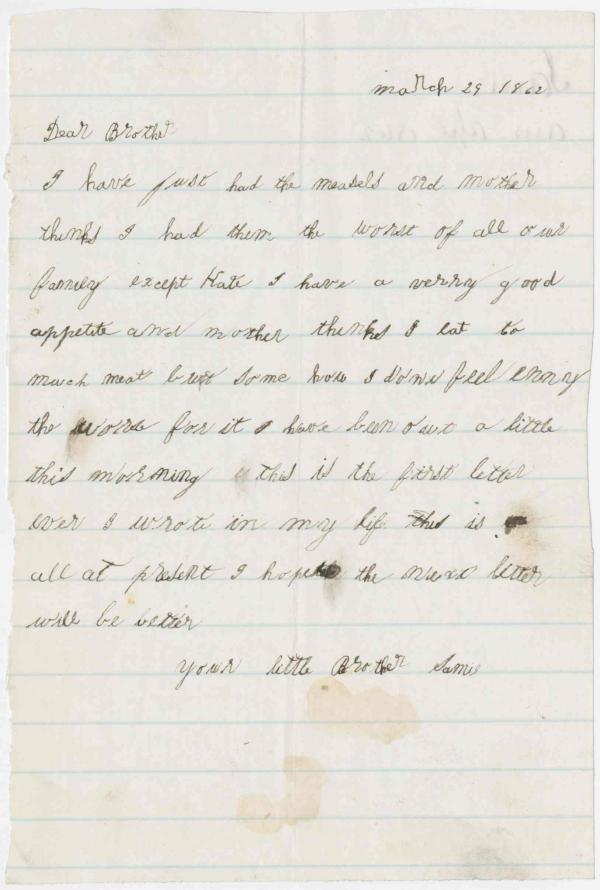 march 29 1862
Dear Brother
I have just had the measels and mother
thinks I had them the worst of all our
family except Kate I have a verry good
appetite and mother thinks I eat to
much meat but some how I dont feel enny
the worse for it I have been out a little
this morning this is the first letter
ever I wrote in my life this is
all at present I hope the next letter
will be better
your little Brother Samie